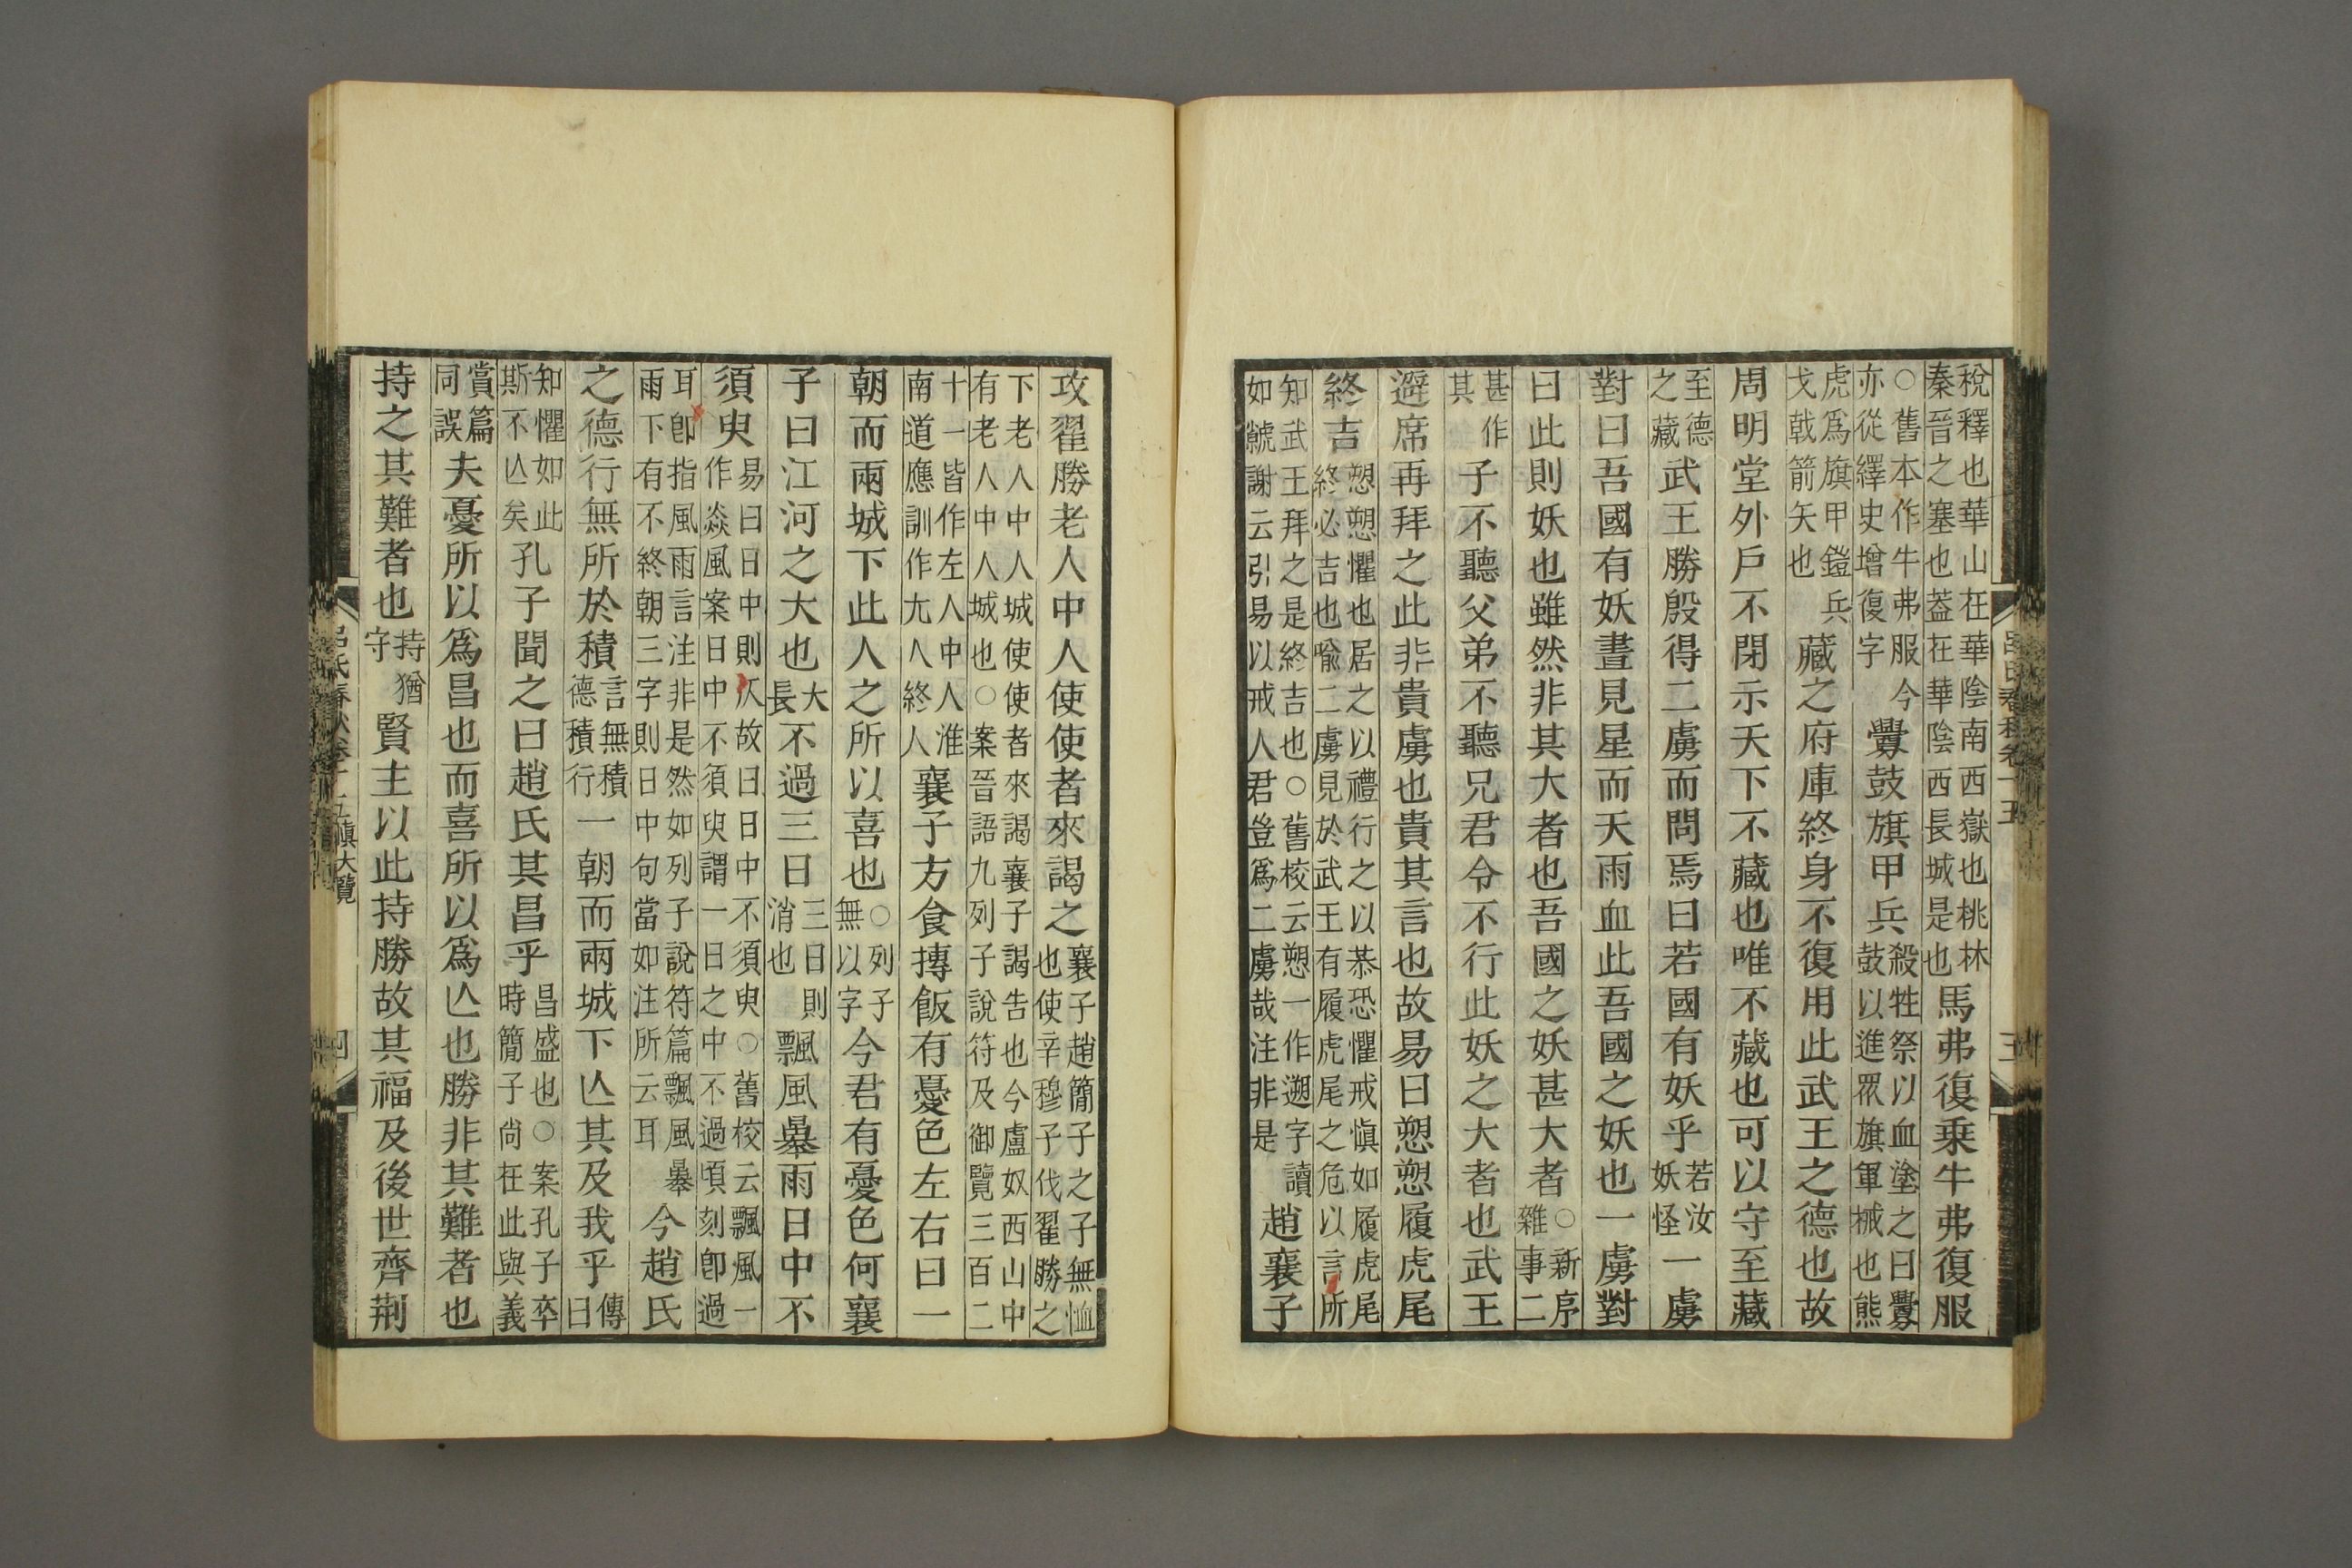 稅釋也華山在華陰南西嶽也桃林秦晉之塞也葢在華陰西長城是也馬弗復乗牛弗復服
○舊本作牛弗服今亦從繹史增復字釁鼓旗甲兵殺牲祭以血塗之曰釁鼓以進眾旗軍械也熊
虎爲旗甲鎧兵戈戟箭矢也藏之府庫終身不復用此武王之德也故
周明堂外戸不閉示天下不藏也唯不藏也可以守至藏
至德之藏武王勝殷得二虜而問焉曰若國有妖乎若汝妖怪一虜
對曰吾國有妖晝見星而天雨血此吾國之妖也一虜對
曰此則妖也雖然非其大者也吾國之妖甚大者○新序雜事二
甚作其子不聽父弟不聽兄君令不行此妖之大者也武王
避席再拜之此非貴虜也貴其言也故易曰愬愬履虎尾
終吉愬愬懼也居之以禮行之以恭恐懼戒愼如履虎尾終必吉也喻二虜見於武王有履虎尾之危以言所
知武王拜之是終吉也○舊校云愬一作遡字讀如虩謝云引易以戒人君豈爲二虜哉注非是趙襄子
攻翟勝老人中人使使者來謁之襄子趙簡子之子無恤也使辛穆子伐翟勝之
下老人中人城使使者來謁襄子謁告也今盧奴西山中有老人中人城也○案晉語九列子說符及御覽三百二
十一皆作左人中人淮南道應訓作尢人終人襄子方食摶飯有憂色左右曰一
朝而兩城下此人之所以喜也○列子無以字今君有憂色何襄
子曰江河之大也大長不過三日三日則消也飄風暴雨日中不
須臾易曰日中則仄故曰日中不須臾○舊校云飄風一作焱風案日中不須臾謂一日之中不過頃刻卽過
耳卽指風雨言注非是然如列子說符篇飄風暴雨下有不終朝三字則日中句當如注所云耳今趙氏
之德行無所於積言無積德積行一朝而兩城下亾其及我乎傳曰
知懼如此斯不亾矣孔子聞之曰趙氏其昌乎昌盛也○案孔子卒時簡子尚在此與義
賞篇同誤夫憂所以爲昌也而喜所以爲亾也勝非其難者也
持之其難者也持猶守賢主以此持勝故其福及後世齊荆
呂氏春秋卷十五愼大覽 四